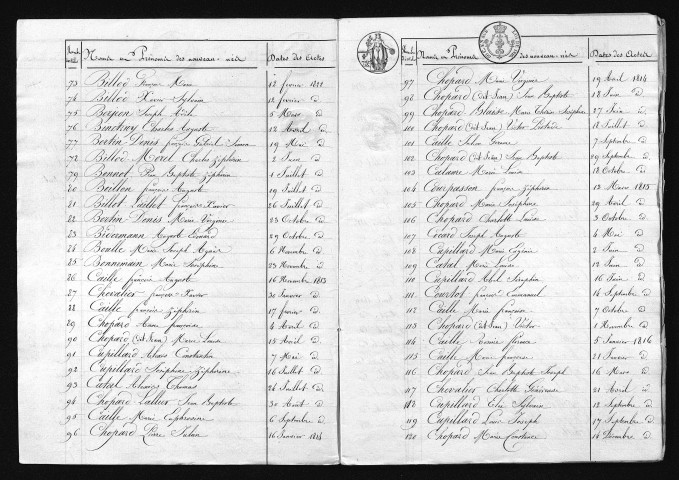 Noms et Prénoms des nouveaux-nés Dates des Actes
73 Billod François Marie 12 février 1822
74 Billod Xavier Sylvain 12 février d
75 Boujon Joseph 5 Mars d
76 Charles Auguste 18 Avril d
77 Bertin Denis François 19 Mai d
78 Billod Morel Charles Zéphirin 2 Juin d
79 Bonnet Jean Baptiste Zéphirin 1 Juillet d
80 Boillon François Auguste 19 Juillet d
81 Billot Paillet François Xavier 26 Juillet d
82 Bertin Denis Marie Virginie 23 Octobre d
83 Bidermann Auguste Edouard 29 Octobre d
84 Boville Marie Joseph 6 Novembre d
85 Bonnemain Marie Joséphine 23 Novembre d
86 Caille François Auguste 16 Novembre 1813
87 Chevalier François Xavier 30 Janvier d
88 Caille François Zéphirin 17 février d
89 Chopard Marie Françoise 4 Avril d
90 Chopard (dit Jean) Marie Louise 15 Avril d
91 Cupillard Alexis Constantin 7 Mai d
92 Cupillard Joséphine Zéphirine 16 Juillet d
93 Catal Thomas 24 Juillet d
94 Chopard Lallier Jean Baptiste 30 Août d
95 Caille Marie Euphrosine 6 Septembre d
96 Chopard Pierre Julien 16 Janvier 1814
Noms et Prénoms des nouveaux-nés Dates des Actes
97 Chopard Marie Virginie 19 Avril 1814
98 Chopard (dit Jean) Jean Baptiste 18 Juin d
99 Chopard Blaise Marie Thérèse Joséphine 27 Juin d
100 Chopard (dit Jean) Victor 18 Juillet d
101 Caille 7 Septembre d
102 Chopard (dit Jean) Jean Baptiste 29 Septembre d
103 Calame Marie Louise 18 Octobre d
104 Courpasson François Zéphirin 12 Mars 1815
105 Chopard Marie Joséphine 29 Avril d
106 Chopard Charlotte Louise 3 Octobre d
107 Joseph Auguste 4 Mai d
108 Cupillard Marie Eugénie 2 Juin d
109 Catal Marie Louise 12 Juin d
110 Cupillard Abel Séraphin 16 Juin d
111 Courtot François Emmanuel 14 Septembre d
112 Caille Marie Françoise 7 Octobre d
113 Chopard (dit Jean) Victor 1 Novembre d
114 Caille 5 Janvier 1816
115 Caille Marie Françoise 21 Janvier d
116 Chopard Jean Baptiste Joseph 16 Mars d
117 Chevalier Charlotte Généreuse 21 Avril d
118 Cupillard Élie Sylvain 12 Septembre d
119 Cupillard Louis Joseph 17 Septembre d
120 Chopard Marie Constance 14 Décembre d